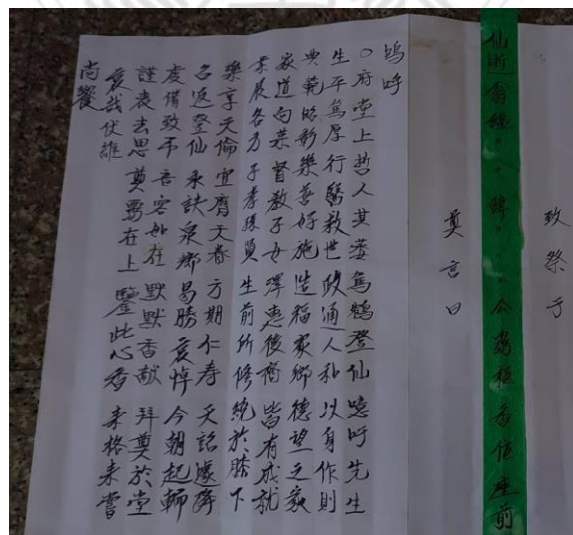 致祭于
仙逝翁經○○諱○○公為柩香位座前
奠言曰
嗚呼
○府堂上哲人其萎駕鶴登仙噫吁先生
生平篤厚行醫救世政通人和以身作則
典範昭彰樂善好施造福家鄉德望之家
家道向榮督教子女澤惠後裔皆有成就
業展各方子孝孫賢生前所修繞於膝下
樂享天倫宜膺天眷方期仁壽天詔遽膺
名返登仙永訣泉鄉曷勝哀悼今朝起輀
虔備致弔音容如在默默香獻拜奠於堂
謹表去思奠罗在上鑒此心香来格来嘗
哀哉伏維
尚饗